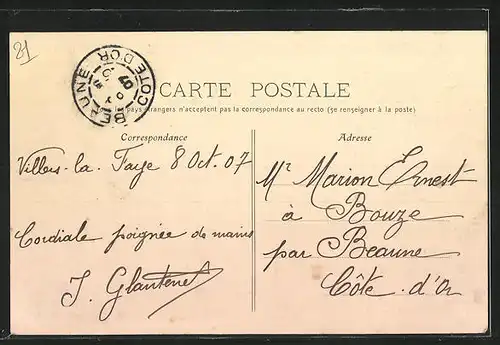 21
BEAUNE CÔTE D'OR
CARTE POSTALE
pays étrangers n'acceptent pas la correspondance au recto (se renseigner à la poste)
Correspondance
Adresse
Villers-la-Faye 8 Oct. 07
Mr Marion Ernest
à Bouze
Cordiale poignée de mains
par Beaune
J. Glantenet
Côte-d'Or